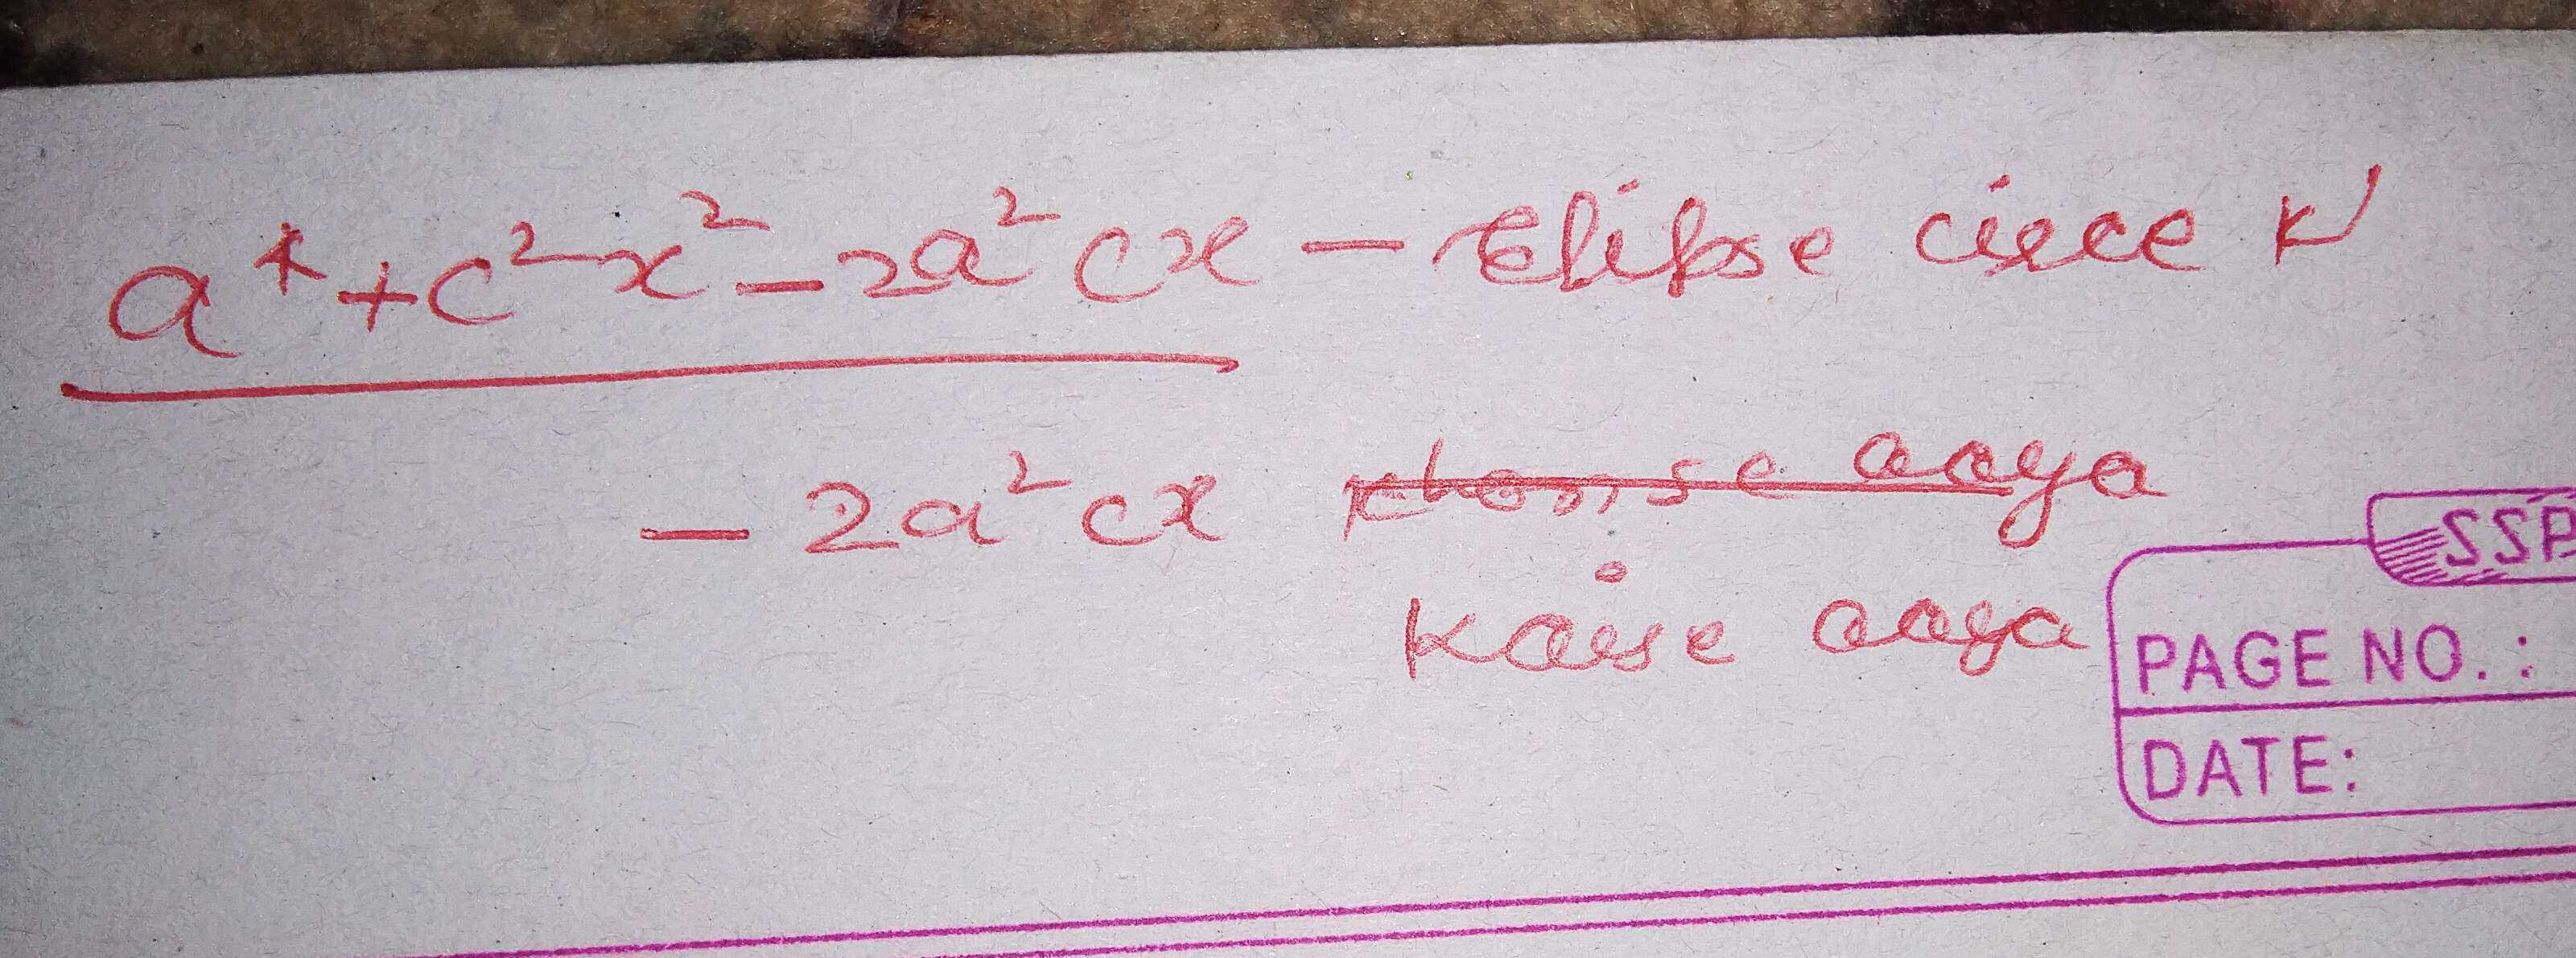 a⁴ + c²x² - 2a²cx - Elipse
- 2a²cx se aaya
Kaise aaya
SSP
PAGE NO. :
DATE: